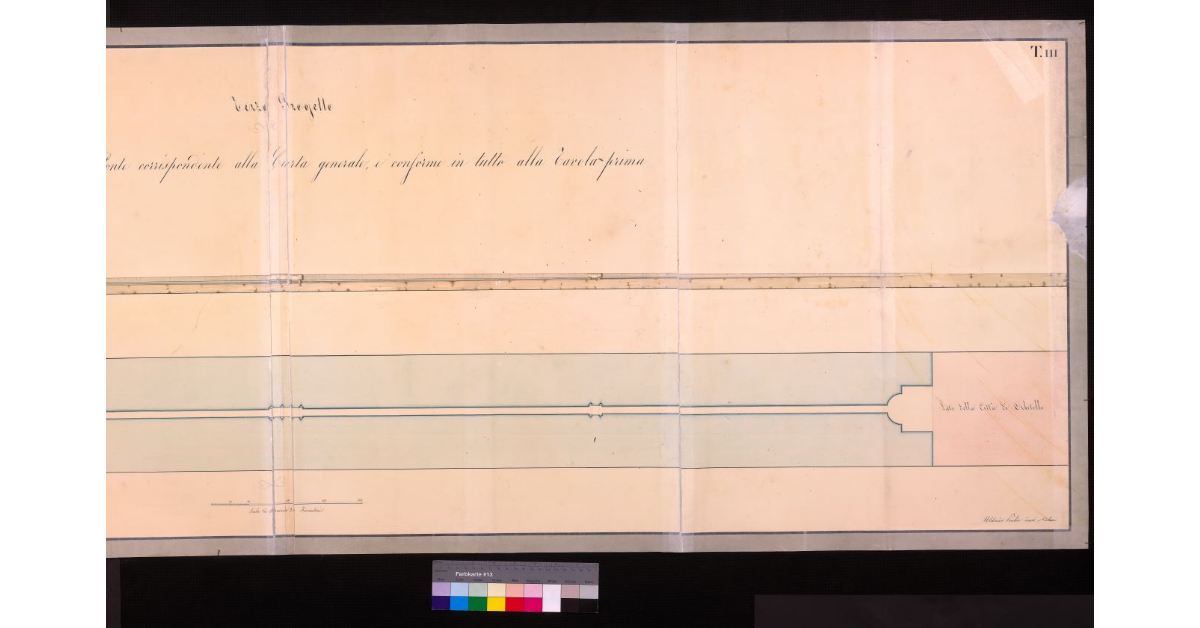 T. III
Terzo Progetto
onte corrispondente alla Carta generale, e conforme in tutto alla Tavola prima
Lato della Città di Orbetello
Scala di Braccia
Farbkarte #13